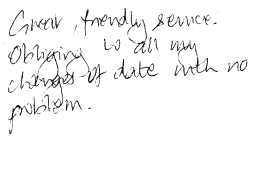 Great, friendly service.
Obliging to all my
changes of date with no
problem.